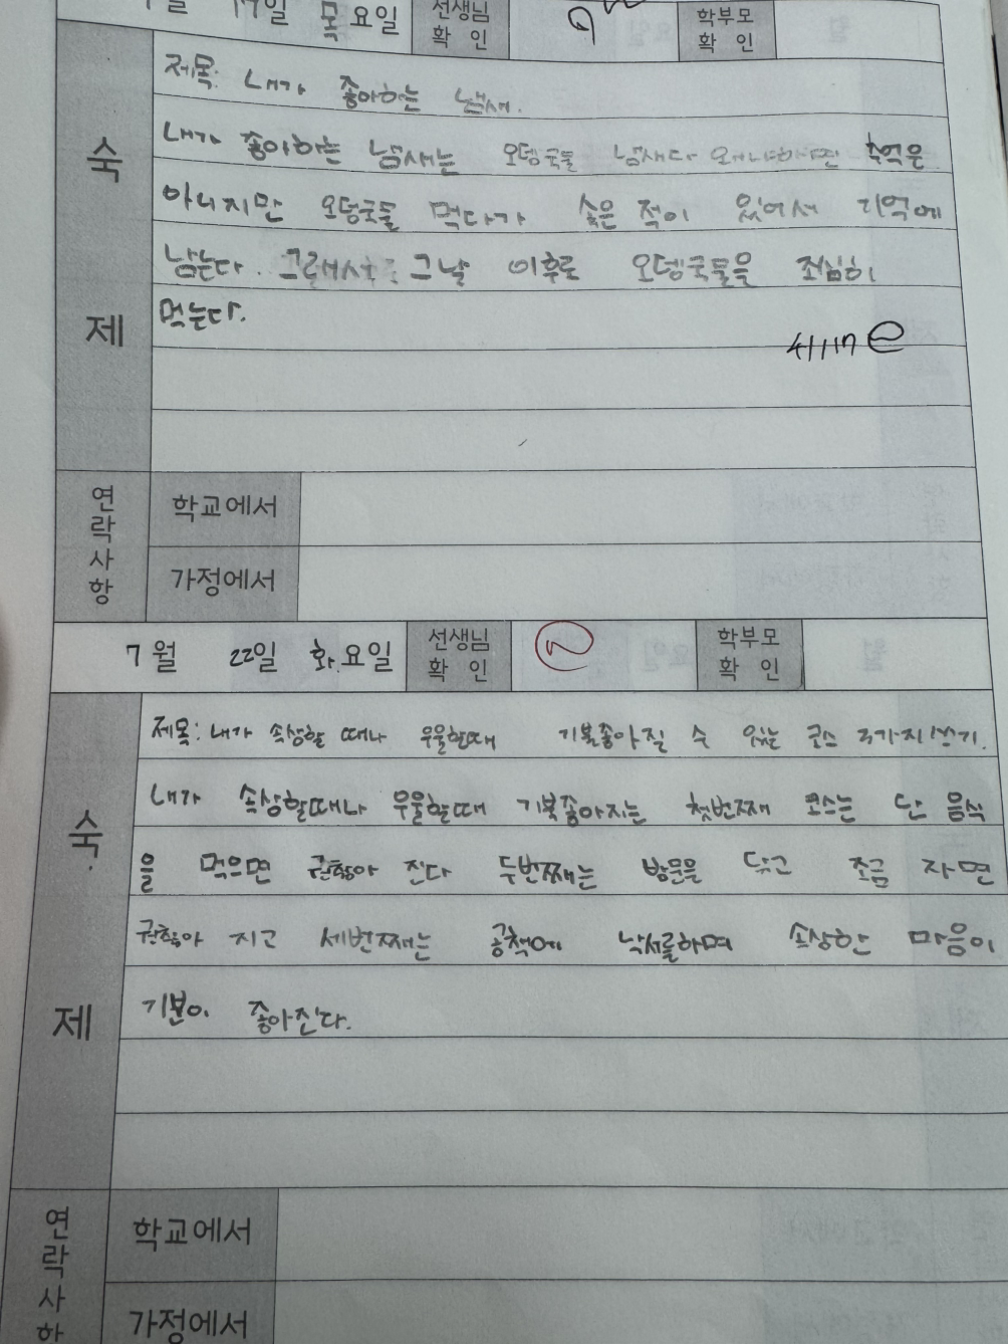 월 17일 목요일 선생님 확인 학부모 확인
숙제
제목: 내가 좋아하는 냄새.
내가 좋아하는 냄새는 오뎅국물 냄새다 왜냐하면 추억은
아니지만 오뎅국물 먹다가 쏟은 적이 있어서 기억에
남는다. 그래서 그날 이후로 오뎅국물을 조심히
먹는다.
연락사항
학교에서
가정에서
7월 22일 화요일 선생님 확인 학부모 확인
숙제
제목: 내가 속상할 때나 우울할때 기분좋아질 수 있는 코스 3가지쓰기.
내가 속상할때나 우울할때 기분좋아지는 첫번째 코스는 단 음식
을 먹으면 괜찮아 진다 두번째는 방문을 닫고 조금 자면
괜찮아 지고 세번째는 공책에 낙서를하며 속상한 마음이
기분이 좋아진다.
연락사항
학교에서
가정에서